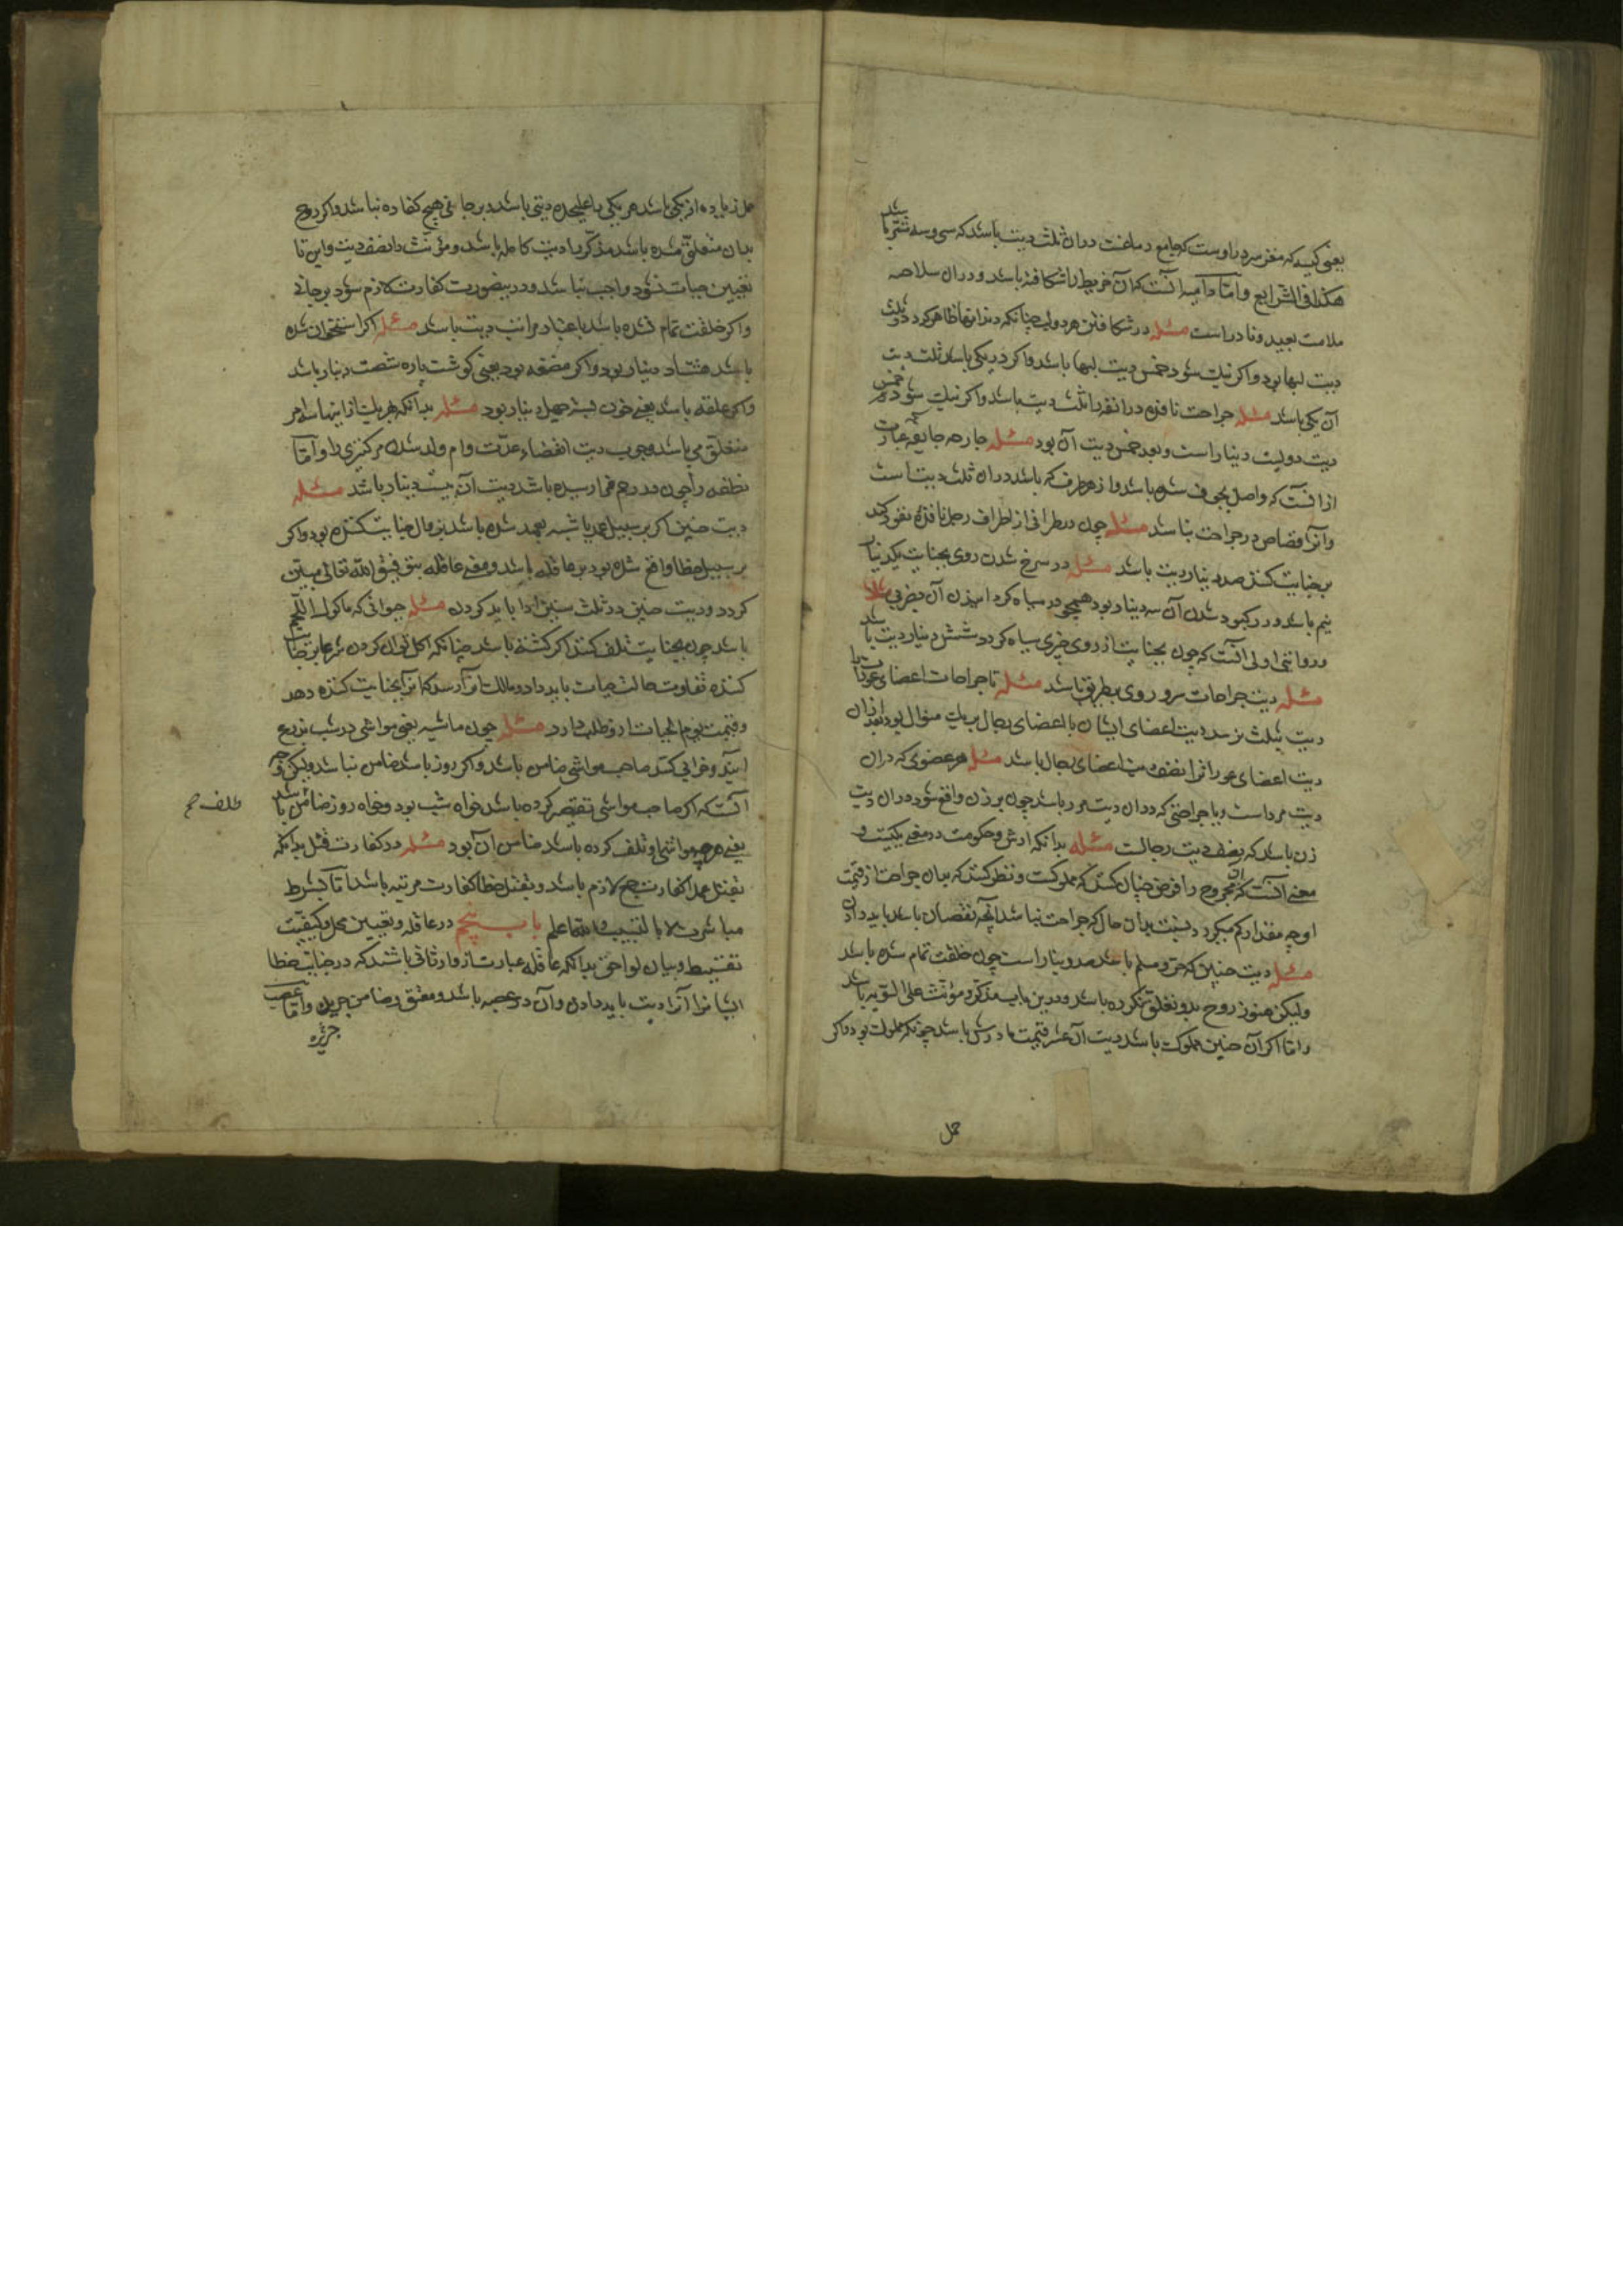 یعنی کیسه که مغز سر در اوست که جامع دماغست دران ثلث دیت باشد که سی و سه شتر باشد
هکذا فی الشرایع و اما دامیه آنست که آن خریطه را شکافته باشد و دران سلامه
ملامت بعید و نادر است مسئله در شکافتن هر دو لب چنانکه دندانها ظاهر گردد ثلث
دیت لبها بود و اگر نیک شود خمس دیت لبها باشد و اگر در یکی باشد ثلث دیت
آن یکی باشد مسئله جراحت نافذه در انف را ثلث دیت باشد و اگر نیک شود خمس
دیت دویست دینار است و بعد خمس دیت آن بود مسئله جارحه جایفه عبارت
از آنست که واصل بجوف شده باشد و از هر طرف که باشد دران ثلث دیت است
و آنرا قصاص در جراحت نباشد مسئله چون در طرفی از اطراف رجل نافذه نفوذ کند
بر جنایت کننده صد دینار دیت باشد مسئله در سرخ شدن روی بجنایت یکدینار
نیم باشد و در کبود شدن آن سه دینار بود همچو در سیاه گردانیدن آن
و روایتی اولی آنست که چون بجنایت از روی چیزی سیاه گردد شش دینار دیت باشد
مسئله دیت جراحات سر و روی بطریق باشد مسئله تا جراحات اعضای عورات
دیت بثلث نرسد دیت اعضای ایشان با اعضای رجال بر یک منوال بود بعد ازان
دیت اعضای عورات را نصف دیت اعضای رجال باشد مسئله هر عضوی که دران
دیت مرد است و یا جراحتی که دران دیت مرد باشد چون بر زن واقع شود دران دیت
زن باشد که نصف دیت رجالست مسئله بدانکه ارش و حکومت در معنی یکیست و
معنی آنست که آن مجروح را فرض چنان کنند که مملوکست و نظر کنند که بدان جراحت از قیمت
او چه مقدار کم میگردد نسبت بدان حال که جراحت نباشد آنچه نقصان باشد باید دادن
مسئله دیت جنین که حر و مسلم باشد صد دینار است چون خلقت تمام شده باشد
ولیکن هنوز روح بدو تعلق نکرده باشد و درین باب مذکر و مؤنث علی السویه باشد
و اما اگر آن جنین مملوک باشد دیت آن عشر قیمت مادرش باشد چونکه مملوک بود و اگر
حمل
حمل زیاده از یکی باشد هر یکی را علیحده دیتی باشد و بر جانی هیچ کفاره نباشد و اگر روح
بدان متعلق شده باشد مذکر را دیت کامله باشد و مؤنث را نصف دیت و این تا
تعیین حیات نشود واجب نباشد و درینصورت کفارت لازم شود بر جانی
و اگر خلقت تمام نشده باشد باعتبار مراتب دیت باشد مسئله اگر استخوان شده
باشد هشتاد دینار بود و اگر مضغه بود یعنی گوشت پاره شصت دینار باشد
و اگر علقه باشد یعنی خون بسته چهل دینار بود مسئله بدانکه بهر یک از اینها امر
متعلق می باشد وجوب دیت انقضاء عدت و ام ولد شدن مر کنیزی را و اما
نطفه را چون در رحم قرار رسیده باشد دیت آن بیست دینار باشد مسئله
دیت جنین اگر بر سبیل عمد یا شبه بعمد شده باشد بر مال جنایت کننده بود و اگر
بر سبیل خطا واقع شده بود بر عاقله باشد و معنی عاقله بتوفیق الله تعالی مبین
گردد و دیت جنین در ثلث سنین ادا باید کردن مسئله حیوانی که ماکول اللحم
باشد چون بجنایت تلف کنند اگر کشته باشد چنانکه اکل توان کردن شرعا بر جنایت
کننده تفاوت حالت حیات باید داد و مالک را رسد که آنرا بجنایت کننده دهد
و قیمت یوم الحیات ازو طلب دارد مسئله چون ماشیه یعنی مواشی در شب بزرع
آیند و خرابی کنند صاحب مواشی ضامن باشد و اگر روز باشد ضامن نباشد ولیکن وجه
آنست که اگر صاحب مواشی تقصیر کرده باشد خواه شب بود و خواه روز ضامن باشد
تلف صح
یعنی هر چه مواشی او تلف کرده باشد ضامن آن بود مسئله در کفارت قتل بدانکه
بقتل عمدا کفارت جمع لازم باشد و بقتل خطا کفارت مرتبه باشد اما بشرط
مباشرت لا بالتسبیب والله اعلم باب پنجم در عاقله و تعیین محل و کیفیت
تقسیط و بیان لواحق بدانکه عاقله عبارت از وارثانی باشند که در جنایت خطا
ایشانرا آنرا دیت باید دادن و آن در عصبه باشد و معتق و ضامن جریره و اما عصبه
جریره